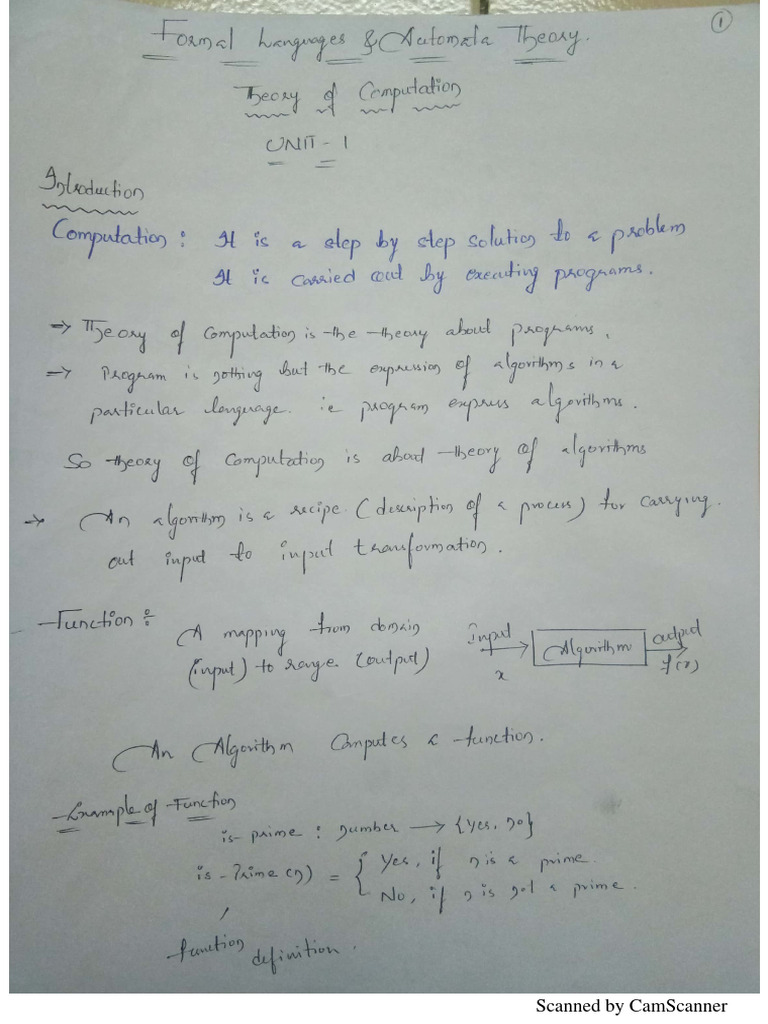 1
Formal Languages & Automata Theory.
Theory of Computation
UNIT - 1
Introduction
Computation : It is a step by step solution to a problem
It is carried out by executing programs.
=> Theory of Computation is the theory about programs.
=> Program is nothing but the expression of algorithms in a
particular language. ie program express algorithms.
So theory of Computation is about theory of algorithms
-> An algorithm is a recipe (description of a process) for carrying
out input to input transformation.
Function :
A mapping from domain
(input) to range (output)
input
x
Algorithm
output
f(x)
An Algorithm Computes a function.
Example of Function
is-prime : number -> {yes, no}
is-Prime(n) = { Yes, if n is a prime.
No, if n is not a prime.
function definition.
Scanned by CamScanner